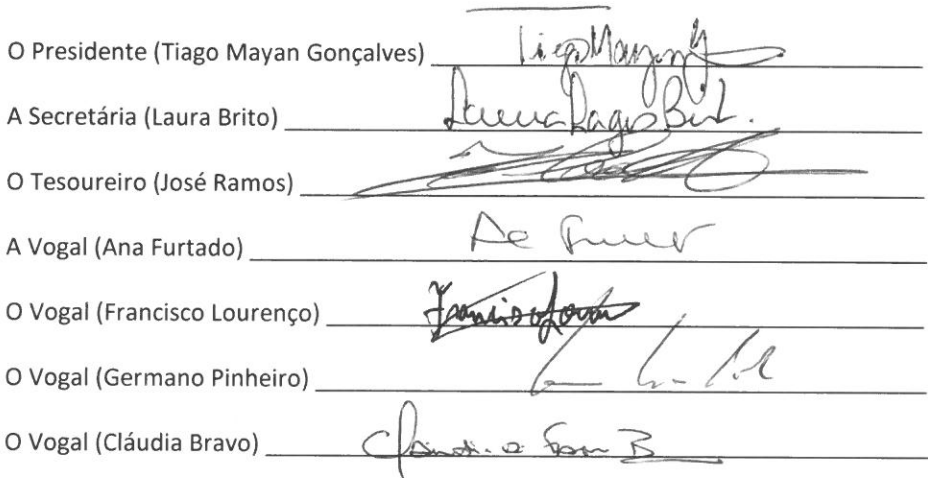 O Presidente (Tiago Mayan Gonçalves) Tiago Mayan G
A Secretária (Laura Brito) Laura Lages Brito
O Tesoureiro (José Ramos)
A Vogal (Ana Furtado)
O Vogal (Francisco Lourenço) Francisco
O Vogal (Germano Pinheiro)
O Vogal (Cláudia Bravo)